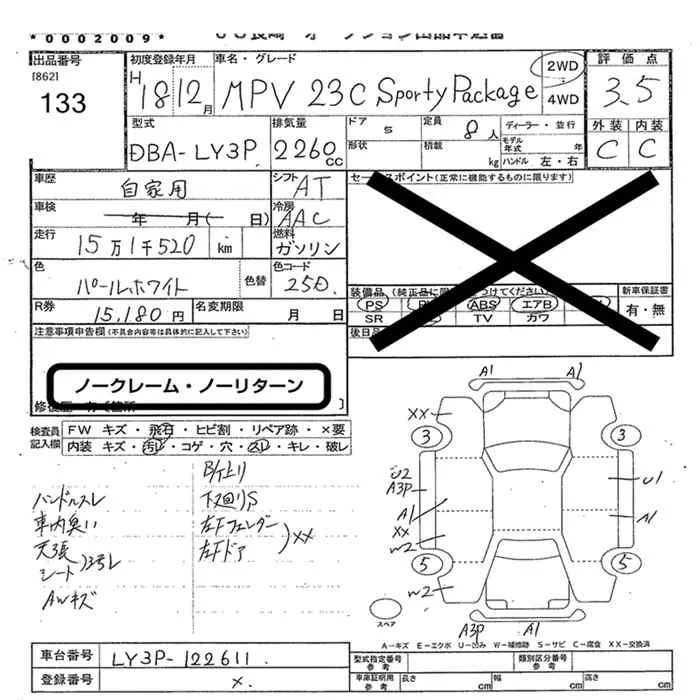 *0002009*
出品番号
[862]
133
初度登録年月
H 18 12月
車名・グレード
MPV 23C Sporty Package
2WD
4WD
評価点
3.5
型式
DBA-LY3P
排気量
2260cc
ドア 5
形状
定員 8人
積載 kg
ディーラー・並行
モデル年式 年
ハンドル 左・右
外装 内装
C C
車歴 自家用
シフト AT
セー スポイント(正常に機能するものに限ります)
車検 年 月( 日)
冷房 AAC
走行 15万1千520 km
燃料 ガソリン
色 パールホワイト 色替
色コード 250
R券 15,180円
名変期限 月 日
装備品 (純正品に限 つけてください)
PS ABS エアB
SR TV カワ
新車保証書
有・無
後日品
注意事項申告欄(不具合内容等は具体的に記入して下さい)
ノークレーム・ノーリターン
検査員記入欄
FW キズ・飛石・ヒビ割・リペア跡・×要
内装 キズ・汚レ・コゲ・穴・スレ・キレ・破レ
ハンドルスレ
車内臭い
天張
シート
AWキズ
下廻りS
左Fフェンダー
左Fドア
XX
A1 A1
XX
3 3
U2
A3P
A1
XX
W2
U1
A1
5 5
W2
A3P A1
スペア
A－キズ E－エクボ U－凹み W－補修跡 S－サビ C－腐食 XX－交換済
車台番号 LY3P-122611
登録番号 x.
型式指定番号参考
類別区分番号参考
車庫証明用参考
長さ cm
幅 cm
高さ cm